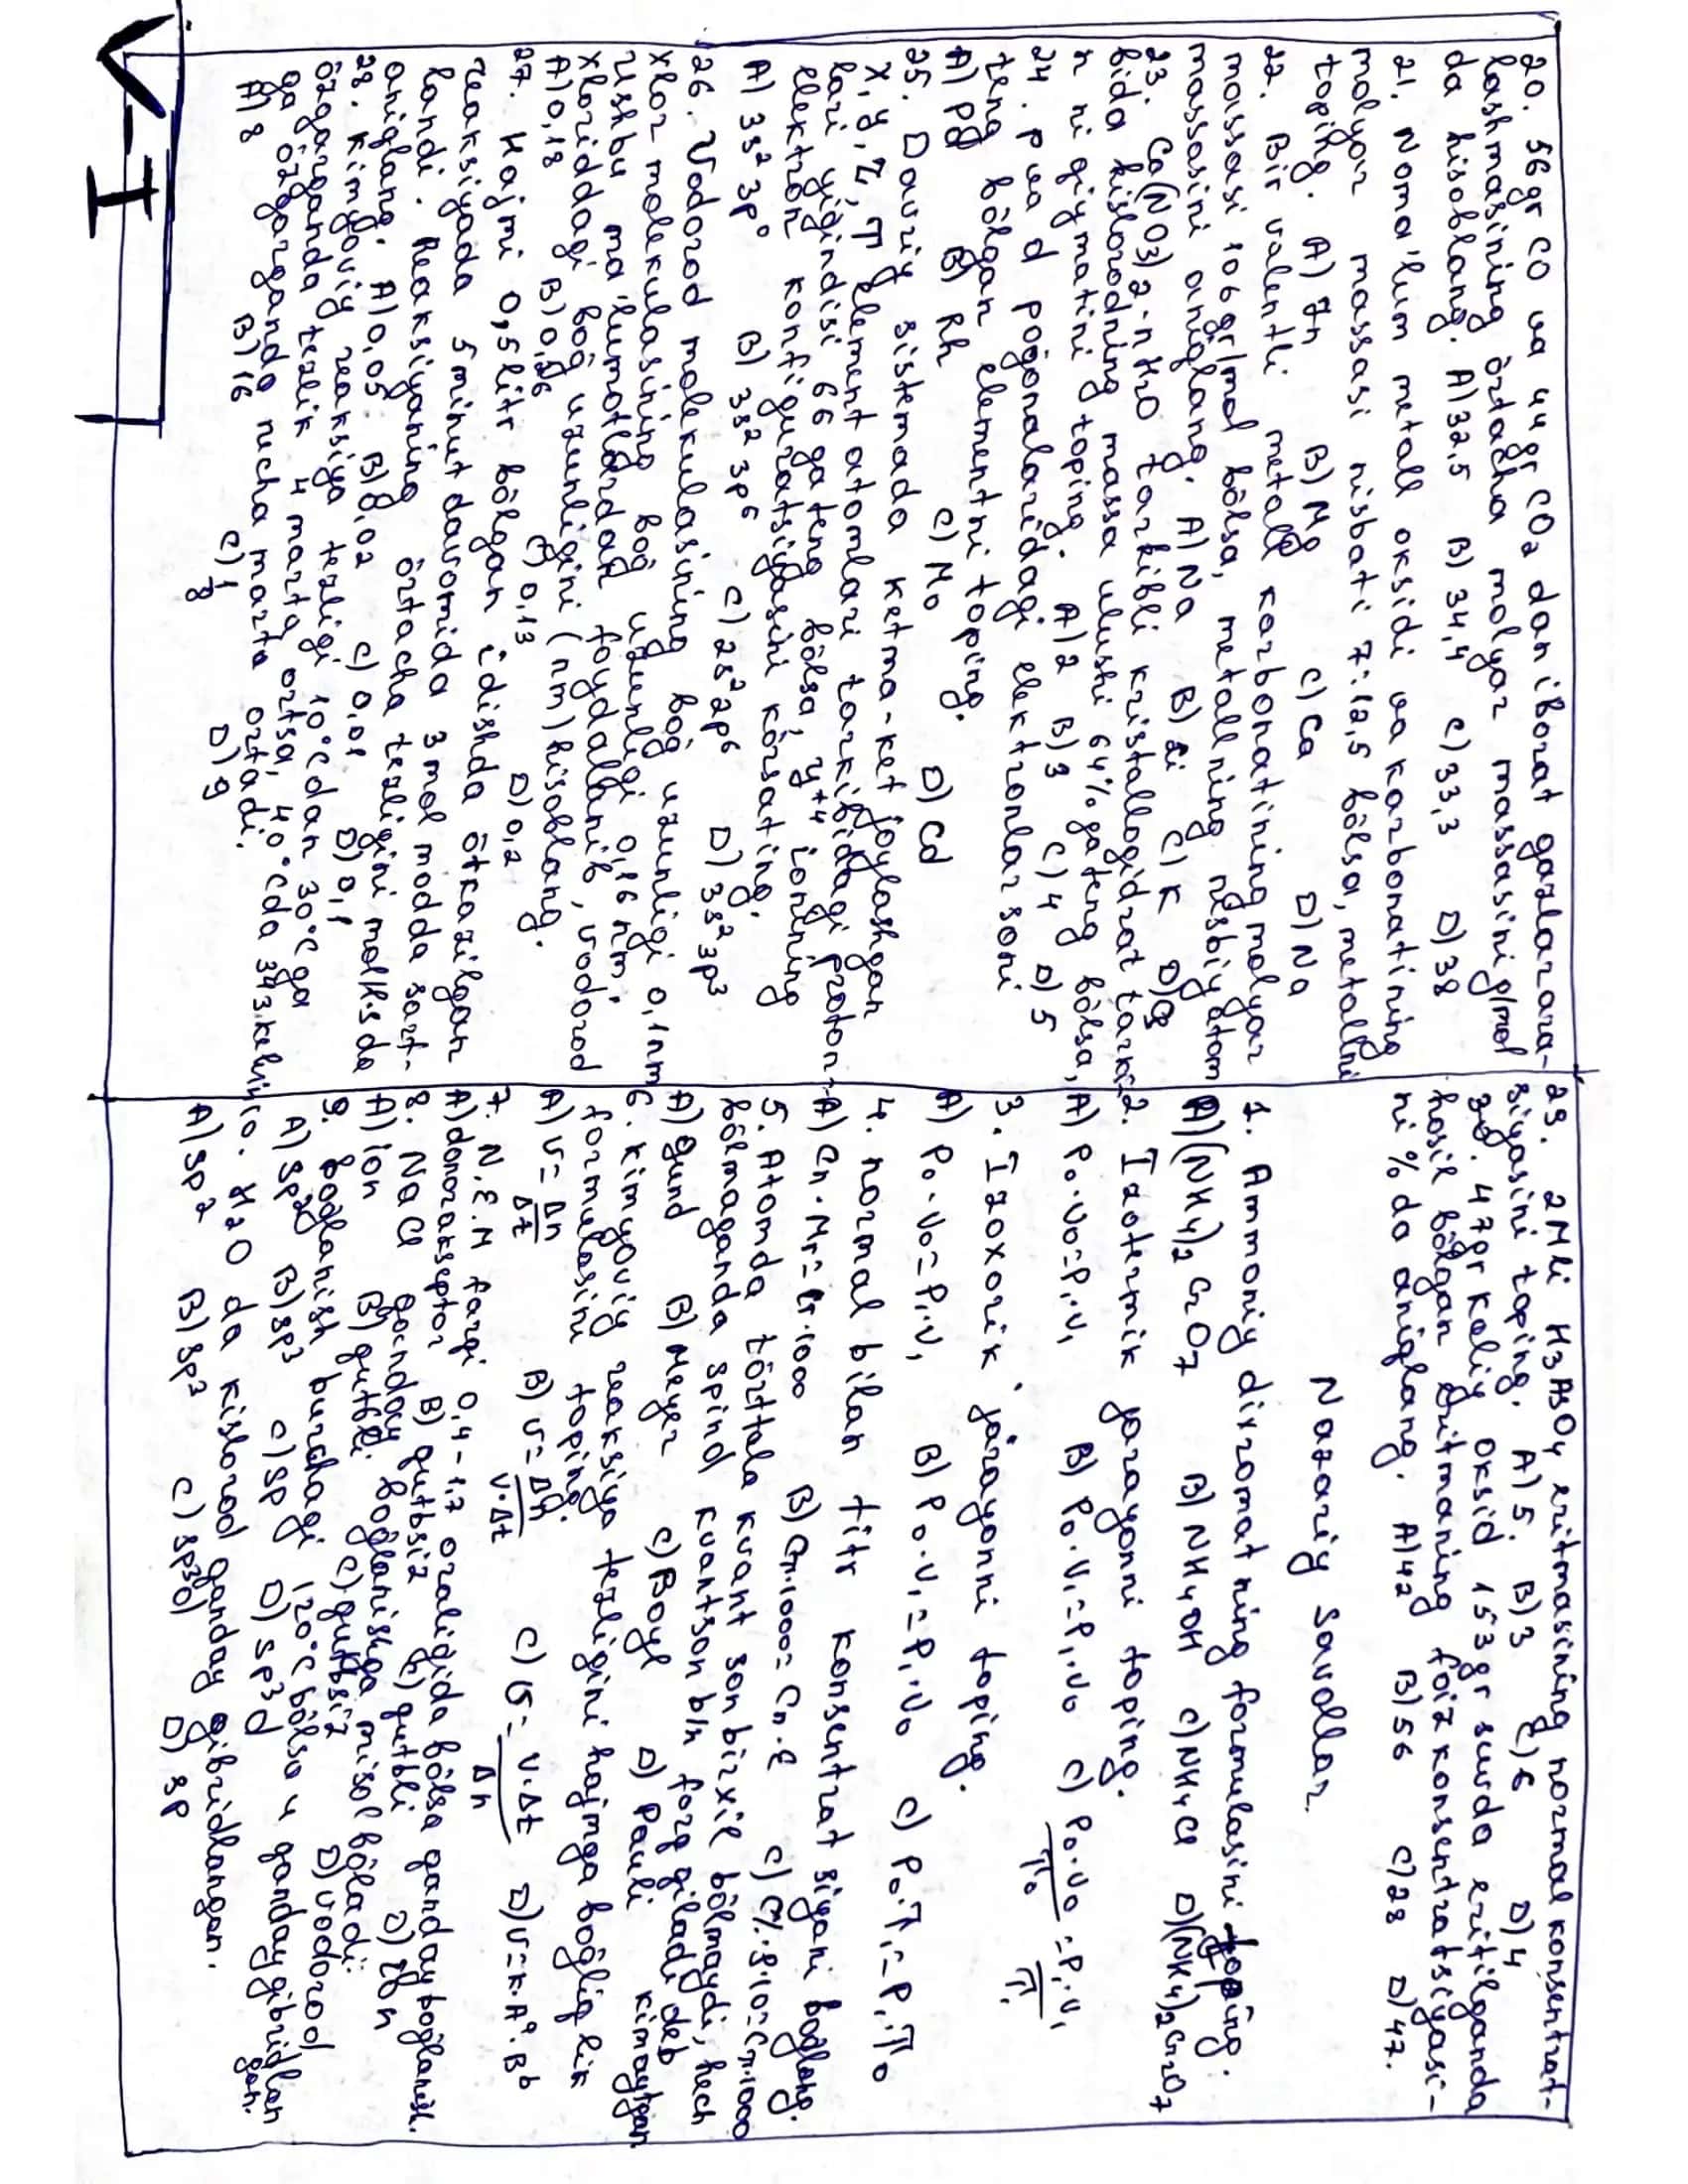 20. 56gr CO va 44gr CO2 dan iborat gazlar ara-
lashmasining o'rtacha molyar massasini g/mol
da hisoblang. A) 32,5 B) 34,4 C) 33,3 D) 38
21. Noma'lum metall oksidi va karbonatining
molyar massasi nisbati 7:12,5 bo'lsa, metallni
toping. A) Zn B) Mg C) Ca D) Na
22. Bir valentli metall karbonatining molyar
massasi 106 gr/mol bo'lsa, metallning nisbiy atom
massasini aniqlang. A) Na B) Li C) K D) Cs
23. Ca(NO3)2·nH2O tarkibli kristallogidrat tarki-
bida kislorodning massa ulushi 64% ga teng bo'lsa,
n ni qiymatini toping. A) 2 B) 3 C) 4 D) 5
24. p va d pog'onalaridagi elektronlar soni
teng bo'lgan elementni toping.
A) Pd B) Rh C) Mo D) Cd
25. Davriy sistemada ketma-ket joylashgan
X, Y, Z, T element atomlari tarkibidagi proton-
lari yig'indisi 66 ga teng bo'lsa, Y+4 ionning
elektron konfiguratsiyasini ko'rsating.
A) 3s² 3p⁰ B) 3s² 3p⁶ C) 2s² 2p⁶ D) 3s² 3p³
26. Vodorod molekulasining bog' uzunligi 0,1nm
xlor molekulasining bog' uzunligi 0,16 nm.
Ushbu ma'lumotlardan foydalanib, vodorod
xloriddagi bog' uzunligini (nm) hisoblang.
A) 0,18 B) 0,26 C) 0,13 D) 0,2
27. Hajmi 0,5 litr bo'lgan idishda o'tkazilgan
reaksiyada 5 minut davomida 3 mol modda sarf-
landi. Reaksiyaning o'rtacha tezligini mol/l·s da
aniqlang. A) 0,05 B) 0,02 C) 0,01 D) 0,1
28. Kimyoviy reaksiya tezligi 10°C dan 30°C ga
o'zgarganda tezlik 4 marta ortsa, 40°C da 343 kelvin
ga o'zgarganda necha marta ortadi.
A) 8 B) 16 C) 1/8 D) 9
V-I
29. 2M li H3AsO4 eritmasining normal konsentrat-
siyasini toping. A) 5. B) 3 C) 6 D) 4
30. 47gr kaliy oksid 153gr suvda eritilganda
hosil bo'lgan eritmaning foiz konsentratsiyasi-
ni % da aniqlang. A) 42 B) 56 C) 28 D) 47.
Nazariy Savollar.
1. Ammoniy dixromatning formulasini toping.
A) (NH4)2 CrO7 B) NH4OH C) NH4Cl D) (NH4)2Cr2O7
2. Izotermik jarayonni toping.
A) P0·V0=P1·V1 B) P0·V1=P1·V0 C) P0·V0/T0=P1·V1/T1
3. Izoxorik jarayonni toping.
A) P0·V0=P1·V1 B) P0·V1=P1·V0 C) P0·T1=P1·T0
4. normal bilan titr konsentrat siyani bog'lang.
A) Cn·Mr=Cr·1000 B) Cn·1000=Cn·E C) C%·ρ·10=Cn·1000
5. Atomda to'rttala kvant son birxil bo'lmaydi, hech
bo'lmaganda spind kvantson b/n farq qiladi deb
A) Gund B) Meyer C) Boyl D) Pauli kim aytgan
6. Kimyoviy reaksiya tezligini hajmga bog'liqlik
formulasini toping.
A) v=Δn/Δt B) v=Δn/V·Δt C) v=V·Δt/Δn D) v=k·Aᵃ·Bᵇ
7. N.E.M farqi 0,4-1,7 oralig'ida bo'lsa qanday bog'lanish.
A) donorakseptor B) qutbsiz C) qutbli D) ion
8. NaCl qanday bog'lanishga misol bo'ladi.
A) ion B) qutbli C) qutbsiz D) vodorod
9. bog'lanish burchagi 120°C bo'lsa u qanday gibridlan
gan.
A) sp² B) sp³ C) sp D) sp³d
10. H2O da kislorod qanday gibridlangan.
A) sp² B) sp³ C) sp³d D) sp